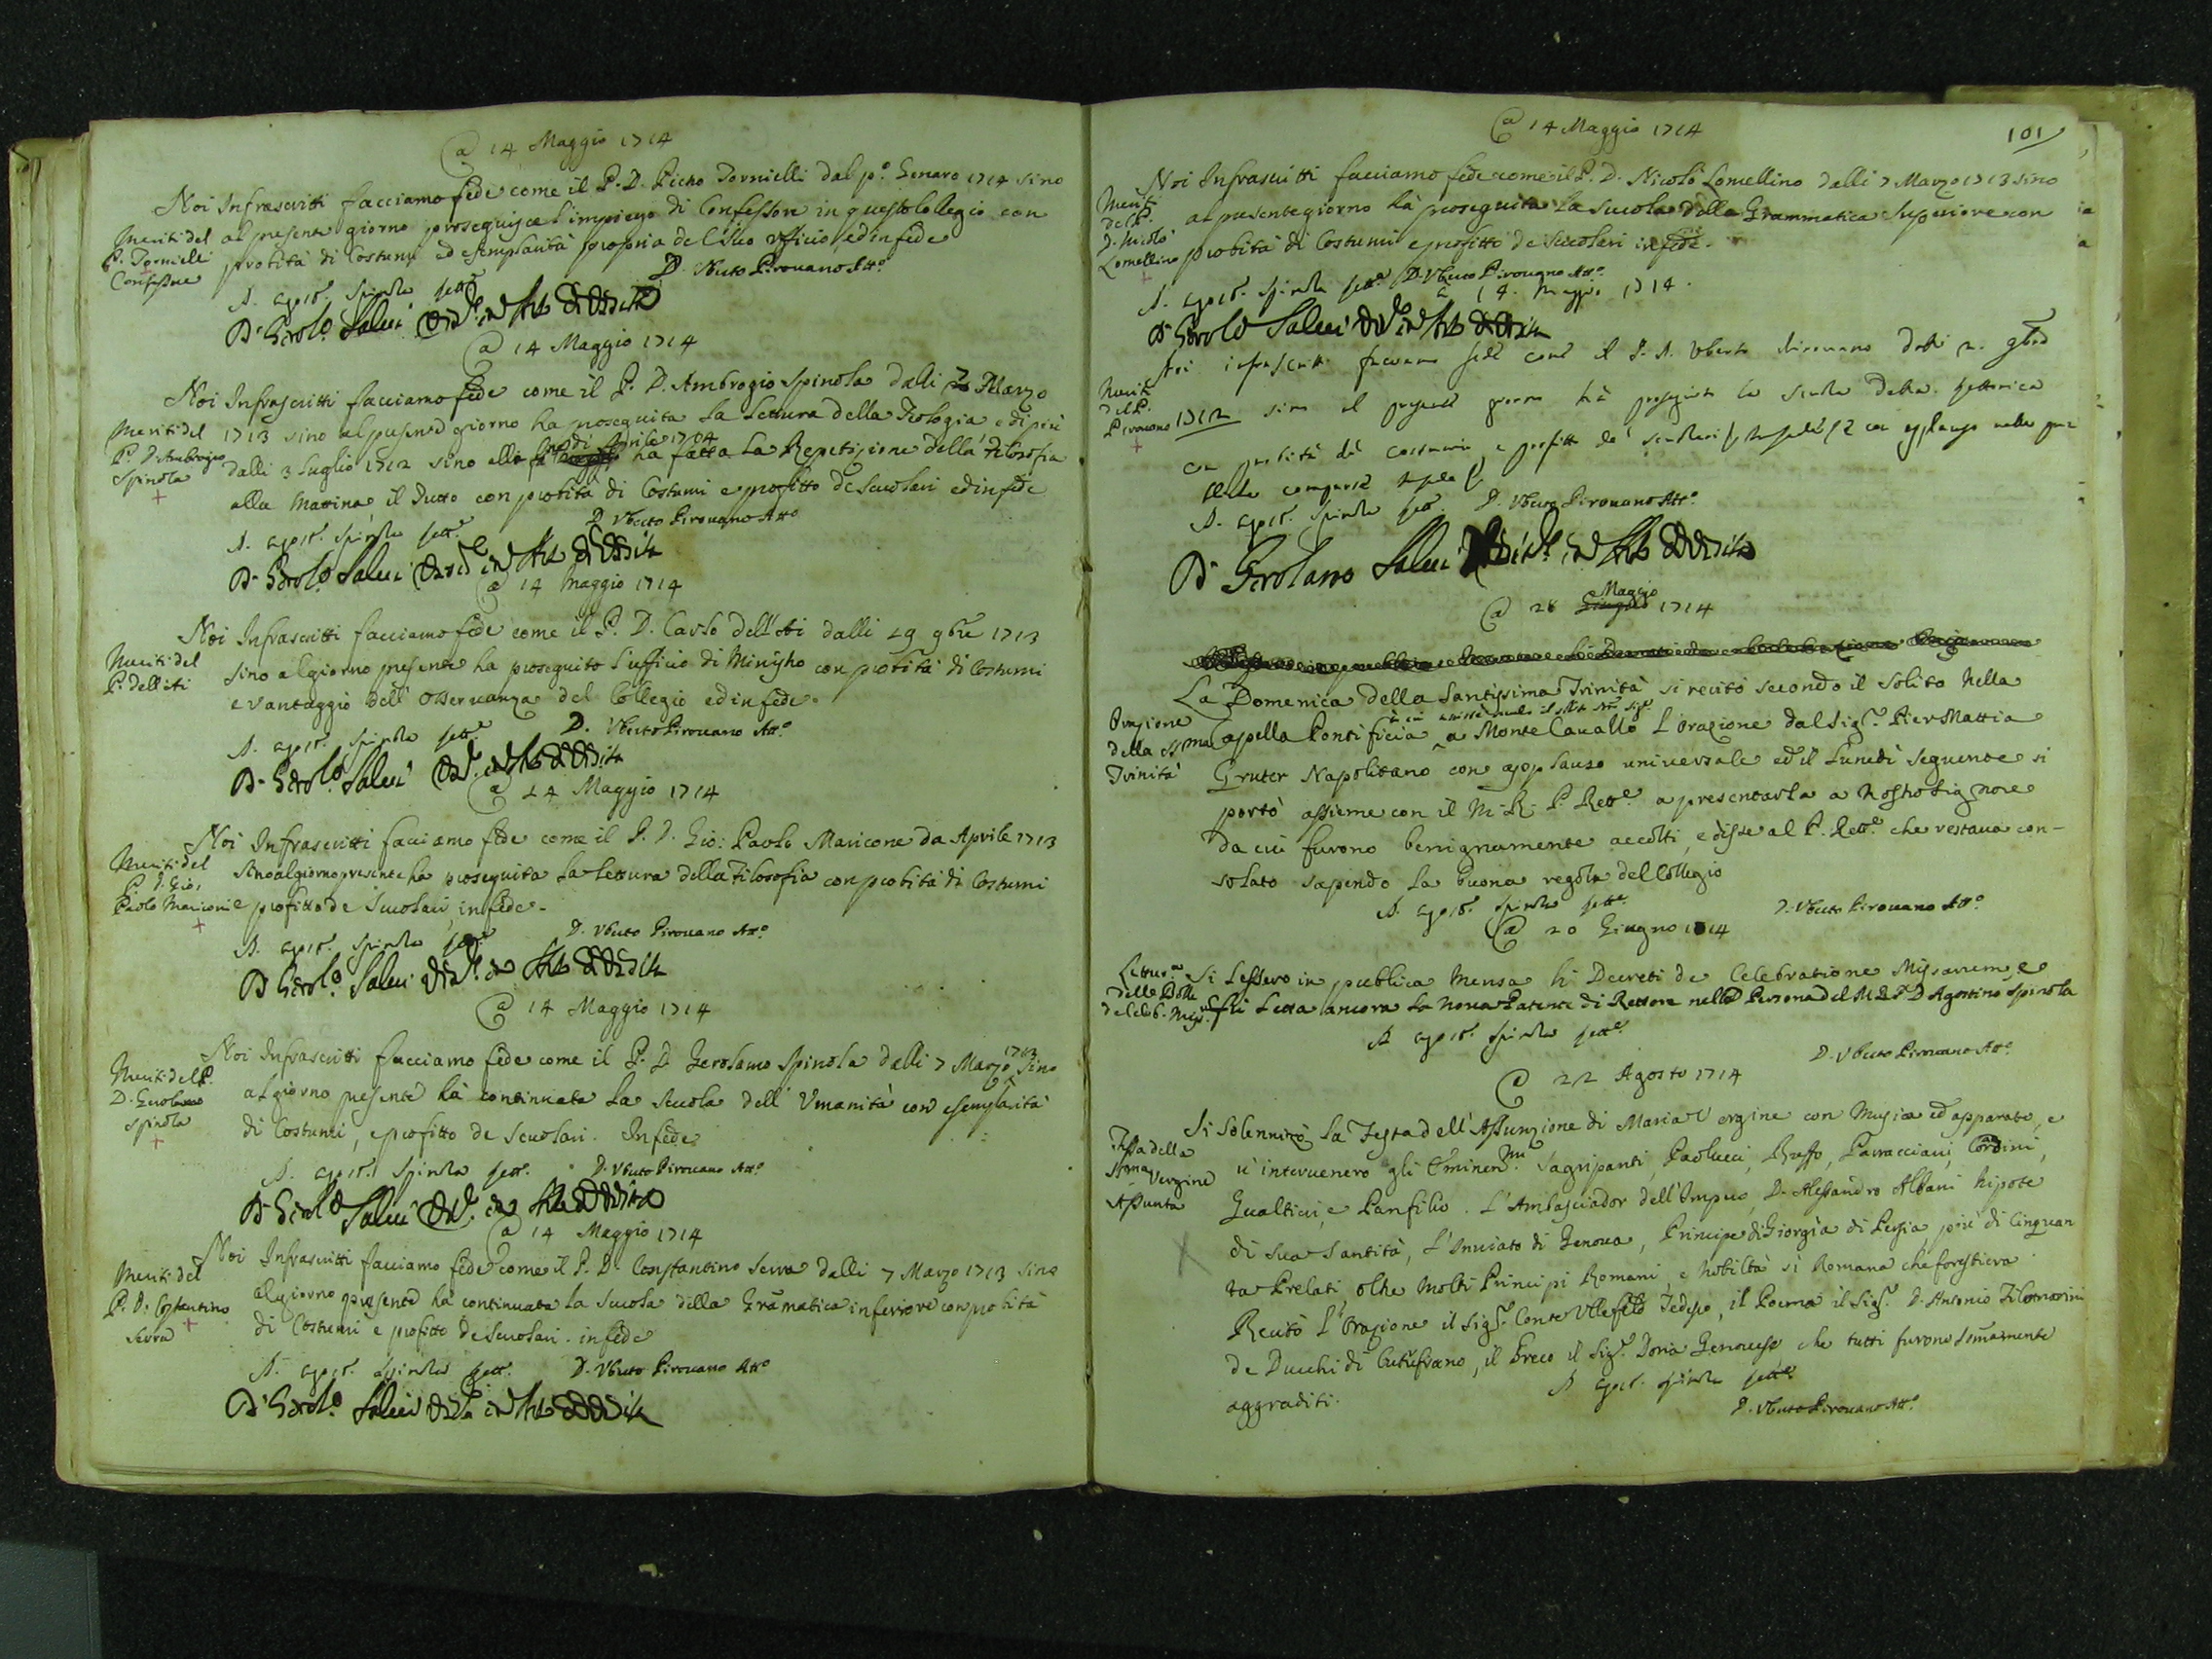 @ 14 Maggio 1714
Noi Infrascritti facciamo fede come il P. D. Pietro Tornielli dal p.º Genaro 1714 sino
Meriti del
P. Tornielli
Confessore
al presente giorno proseguisce l'impiego di Confessore in questo Collegio con
probità di Costumi ed esemplarità propria del suo ufficio, ed in fede
D. Agost. Spinola Rett.e
D. Uberto Pirovano Att.º
D. Gerol.º Salvi
@ 14 Maggio 1714
Noi Infrascritti facciamo fede come il P. D. Ambrogio Spinola dalli 7 Marzo
Meriti del
P. D. Ambrogio
Spinola
1713 sino al presente giorno ha proseguita la Lettura della Teologia e di più
dalli 3 Luglio 1712 sino alli di Aprile 1704 ha fatta la Repetizione della Filosofia
alla Mattina il Tutto con probità di Costumi e profitto de Scuolari ed in fede
D. Agost. Spinola Rett.e
D. Uberto Pirovano Att.º
D. Gerol.º Salvi
@ 14 Maggio 1714
Noi Infrascritti facciamo fede come il P. D. Carlo dell'Asti dalli 29 9bre 1713
Meriti del
P. dell'Asti
sino al giorno presente ha proseguito l'ufficio di Ministro con probità di Costumi
e vantaggio dell'Osservanza del Collegio ed in fede.
D. Agost. Spinola Rett.e
D. Uberto Pirovano Att.º
D. Gerol.º Salvi
@ 14 Maggio 1714
Noi Infrascritti facciamo fede come il P. D. Gio: Paolo Maricone da Aprile 1713
Meriti del
P. D. Gio:
Paolo Mariconi
sino al giorno presente ha proseguita la Lettura della Filosofia con probità di Costumi
e profitto de Scuolari, in fede.
D. Agost. Spinola Rett.e
D. Uberto Pirovano Att.º
D. Gerol.º Salvi
@ 14 Maggio 1714
Noi Infrascritti facciamo fede come il P. D. Gerolamo Spinola dalli 7 Marzo 1713 sino
Meriti del P.
D. Gerolamo
Spinola
al giorno presente hà continuata la scuola dell'Umanità con esemplarità
di Costumi, e profitto de Scuolari. In fede
D. Agost. Spinola Rett.
D. Uberto Pirovano Att.º
D. Gerol.º Salvi
@ 14 Maggio 1714
Noi Infrascritti facciamo fede come il P. D. Constantino Serra dalli 7 Marzo 1713 sino
Meriti del
P. D. Costantino
Serra
al giorno presente hà continuata la scuola della Gramatica inferiore con probità
di Costumi e profitto de Scuolari. in fede
D. Agost. Spinola Rett.
D. Uberto Pirovano Att.º
D. Gerol.º Salvi
101
@ 14 Maggio 1714
Noi Infrascritti facciamo fede come il P. D. Nicolò Lomellino dalli 7 Marzo 1713 sino
Meriti
del P.
D. Nicolò
Lomellino
al presente giorno hà proseguita la scuola della Grammatica Superiore con
probità di Costumi e profitto de Scuolari in fede.
D. Agost. Spinola Rett.e D. Uberto Pirovano Att.º
@ 14. Maggio 1714.
D. Gerol.º Salvi
Noi infrascritti facciamo fede come il P. D. Uberto Pirovano dalli 9bre
Meriti
del P.
Pirovano
1712 sino il presente giorno hà proseguito la scuola della Rettorica
con probità di costumi, e profitto de' scuolari con applauso nelle
D. Agost. Spinola Rett. D. Uberto Pirovano Att.º
D. Gerolamo Salvi
@ 28 Maggio 1714
La Domenica della Santissima Trinità si recitò secondo il solito nella
Orazione
della SSma
Trinità
Capella Pontificia a Monte Cavallo l'orazione dal Sig.r Pier Mattia
Gruter Napolitano con applauso universale ed il Lunedì seguente si
portò assieme con il M. R. P. Rett.e a presentarla a Nostro Signore
da cui furono benignamente accolti, e disse al P. Rett.e che restava con-
solato sapendo la buona regola del Collegio
D. Agost. Spinola Rett.e
D. Uberto Pirovano Att.º
@ 20 Giugno 1714
Si Lessero in publica Mensa li Decreti de Celebratione Missarum, e
Lettura
delle Bolle
de Celeb. Miss.
fù Letta ancora la nova Patente di Rettore nella Persona del M. R. P. D. Agostino Spinola
D. Agost. Spinola Rett.e
D. Uberto Pirovano Att.º
@ 22 Agosto 1714
Si Solennizò la Festa dell'Assunzione di Maria Vergine con Musica ed apparato, e
Festa della
SSma Vergine
Assunta
vi intervenero gli Eminen.mi Sagripanti, Paolucci, Ruffo, Parracciani, Cordini,
Gualtieri, e Panfilio. L'Ambasciador dell'Impero, D. Alessandro Albani Nipote
di Sua Santità, l'Inviato di Genova, Principe di Giorgia di Persia, più di Cinquan
ta Prelati, oltre molti Principi Romani, e Nobiltà sì Romana che forestiera
Recitò l'Orazione il Sig.r Conte Ulefeld Tedesco, il Poema il Sig.r D. Antonio Filomarini
de Ducchi di Cutufiano, il Greco il Sig.r Doria Genovese che tutti furono somamente
aggraditi.
D. Agost. Spinola Rett.e
D. Uberto Pirovano Att.º